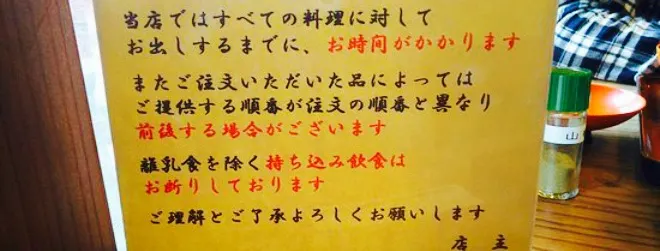 当店ではすべての料理に対して
お出しするまでに、お時間がかかります
またご注文いただいた品によっては
ご提供する順番が注文の順番と異なり
前後する場合がございます
離乳食を除く持ち込み飲食は
お断りしております
ご理解とご了承よろしくお願いします
店 主
山